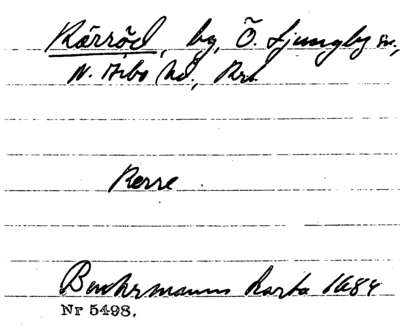 Kärröd, by, Ö. Ljungby sn,
N. Åsbo hd, Kri
Kerre.
Buhrmanns karta 1684
Nr 5498.